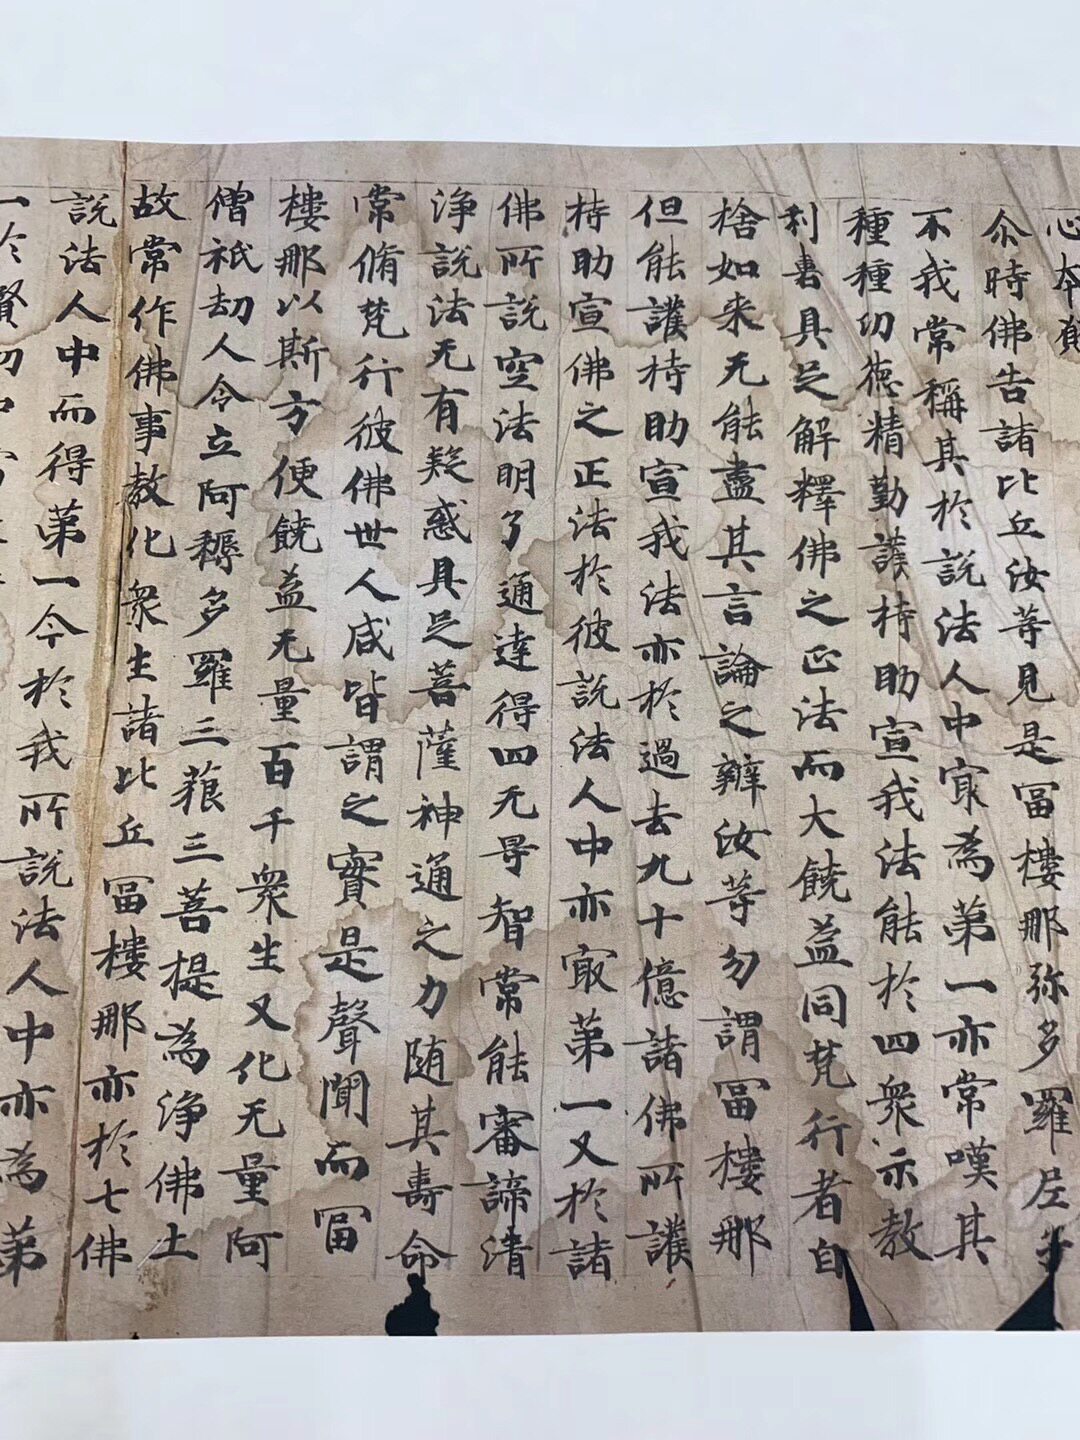 心本願
尒時佛告諸比丘汝等見是冨樓那弥多羅尼子
不我常稱其於說法人中㝡為第一亦常嘆其
種種功德精勤護持助宣我法能於四衆示教
利喜具足解釋佛之正法而大饒益同梵行者自
捨如来无能盡其言論之辯汝等勿謂冨樓那
但能護持助宣我法亦於過去九十億諸佛所護
持助宣佛之正法於彼說法人中亦㝡第一又於諸
佛所說空法明了通達得四无㝵智常能審諦清
淨說法无有疑惑具足菩薩神通之力随其壽命
常脩梵行彼佛世人咸皆謂之實是聲聞而冨
樓那以斯方便饒益无量百千衆生又化无量阿
僧祇劫人令立阿耨多羅三藐三菩提為淨佛土
故常作佛事教化衆生諸比丘冨樓那亦於七佛
說法人中而得第一今於我所說法人中亦為第
一於賢劫中